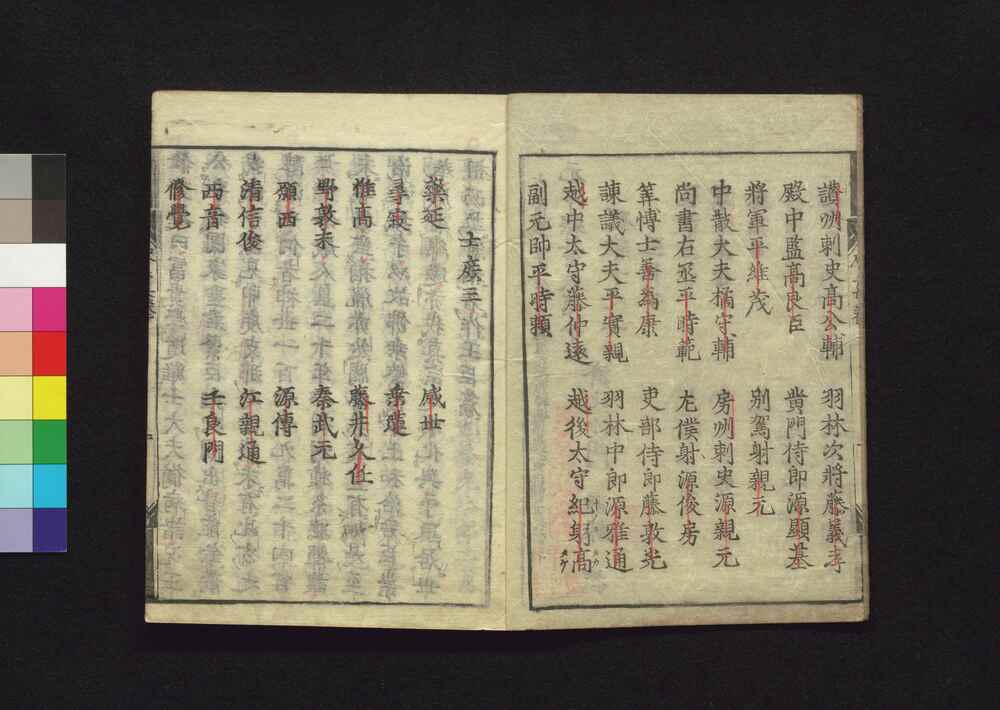 讃州刺史高公輔　羽林次將藤義孝
殿中監高良臣　黄門侍郎源顯基
將軍平維茂　別駕射親元
中散大夫橘守輔　房州刺史源親元
尚書右丞平時範　左僕射源俊房
筭博士善為康　吏部侍郎藤敦光
諫議大夫平實親　羽林中郎源雅通
越中太守藤仲遠　越後太守紀躬高
副元帥平時頼
士庶三
藥延　威世
尋寂　乗蓮
惟高　藤井久任
野敦末　秦武元
願西　源傳
清信俊　江親通
西音　壬良門
修覺